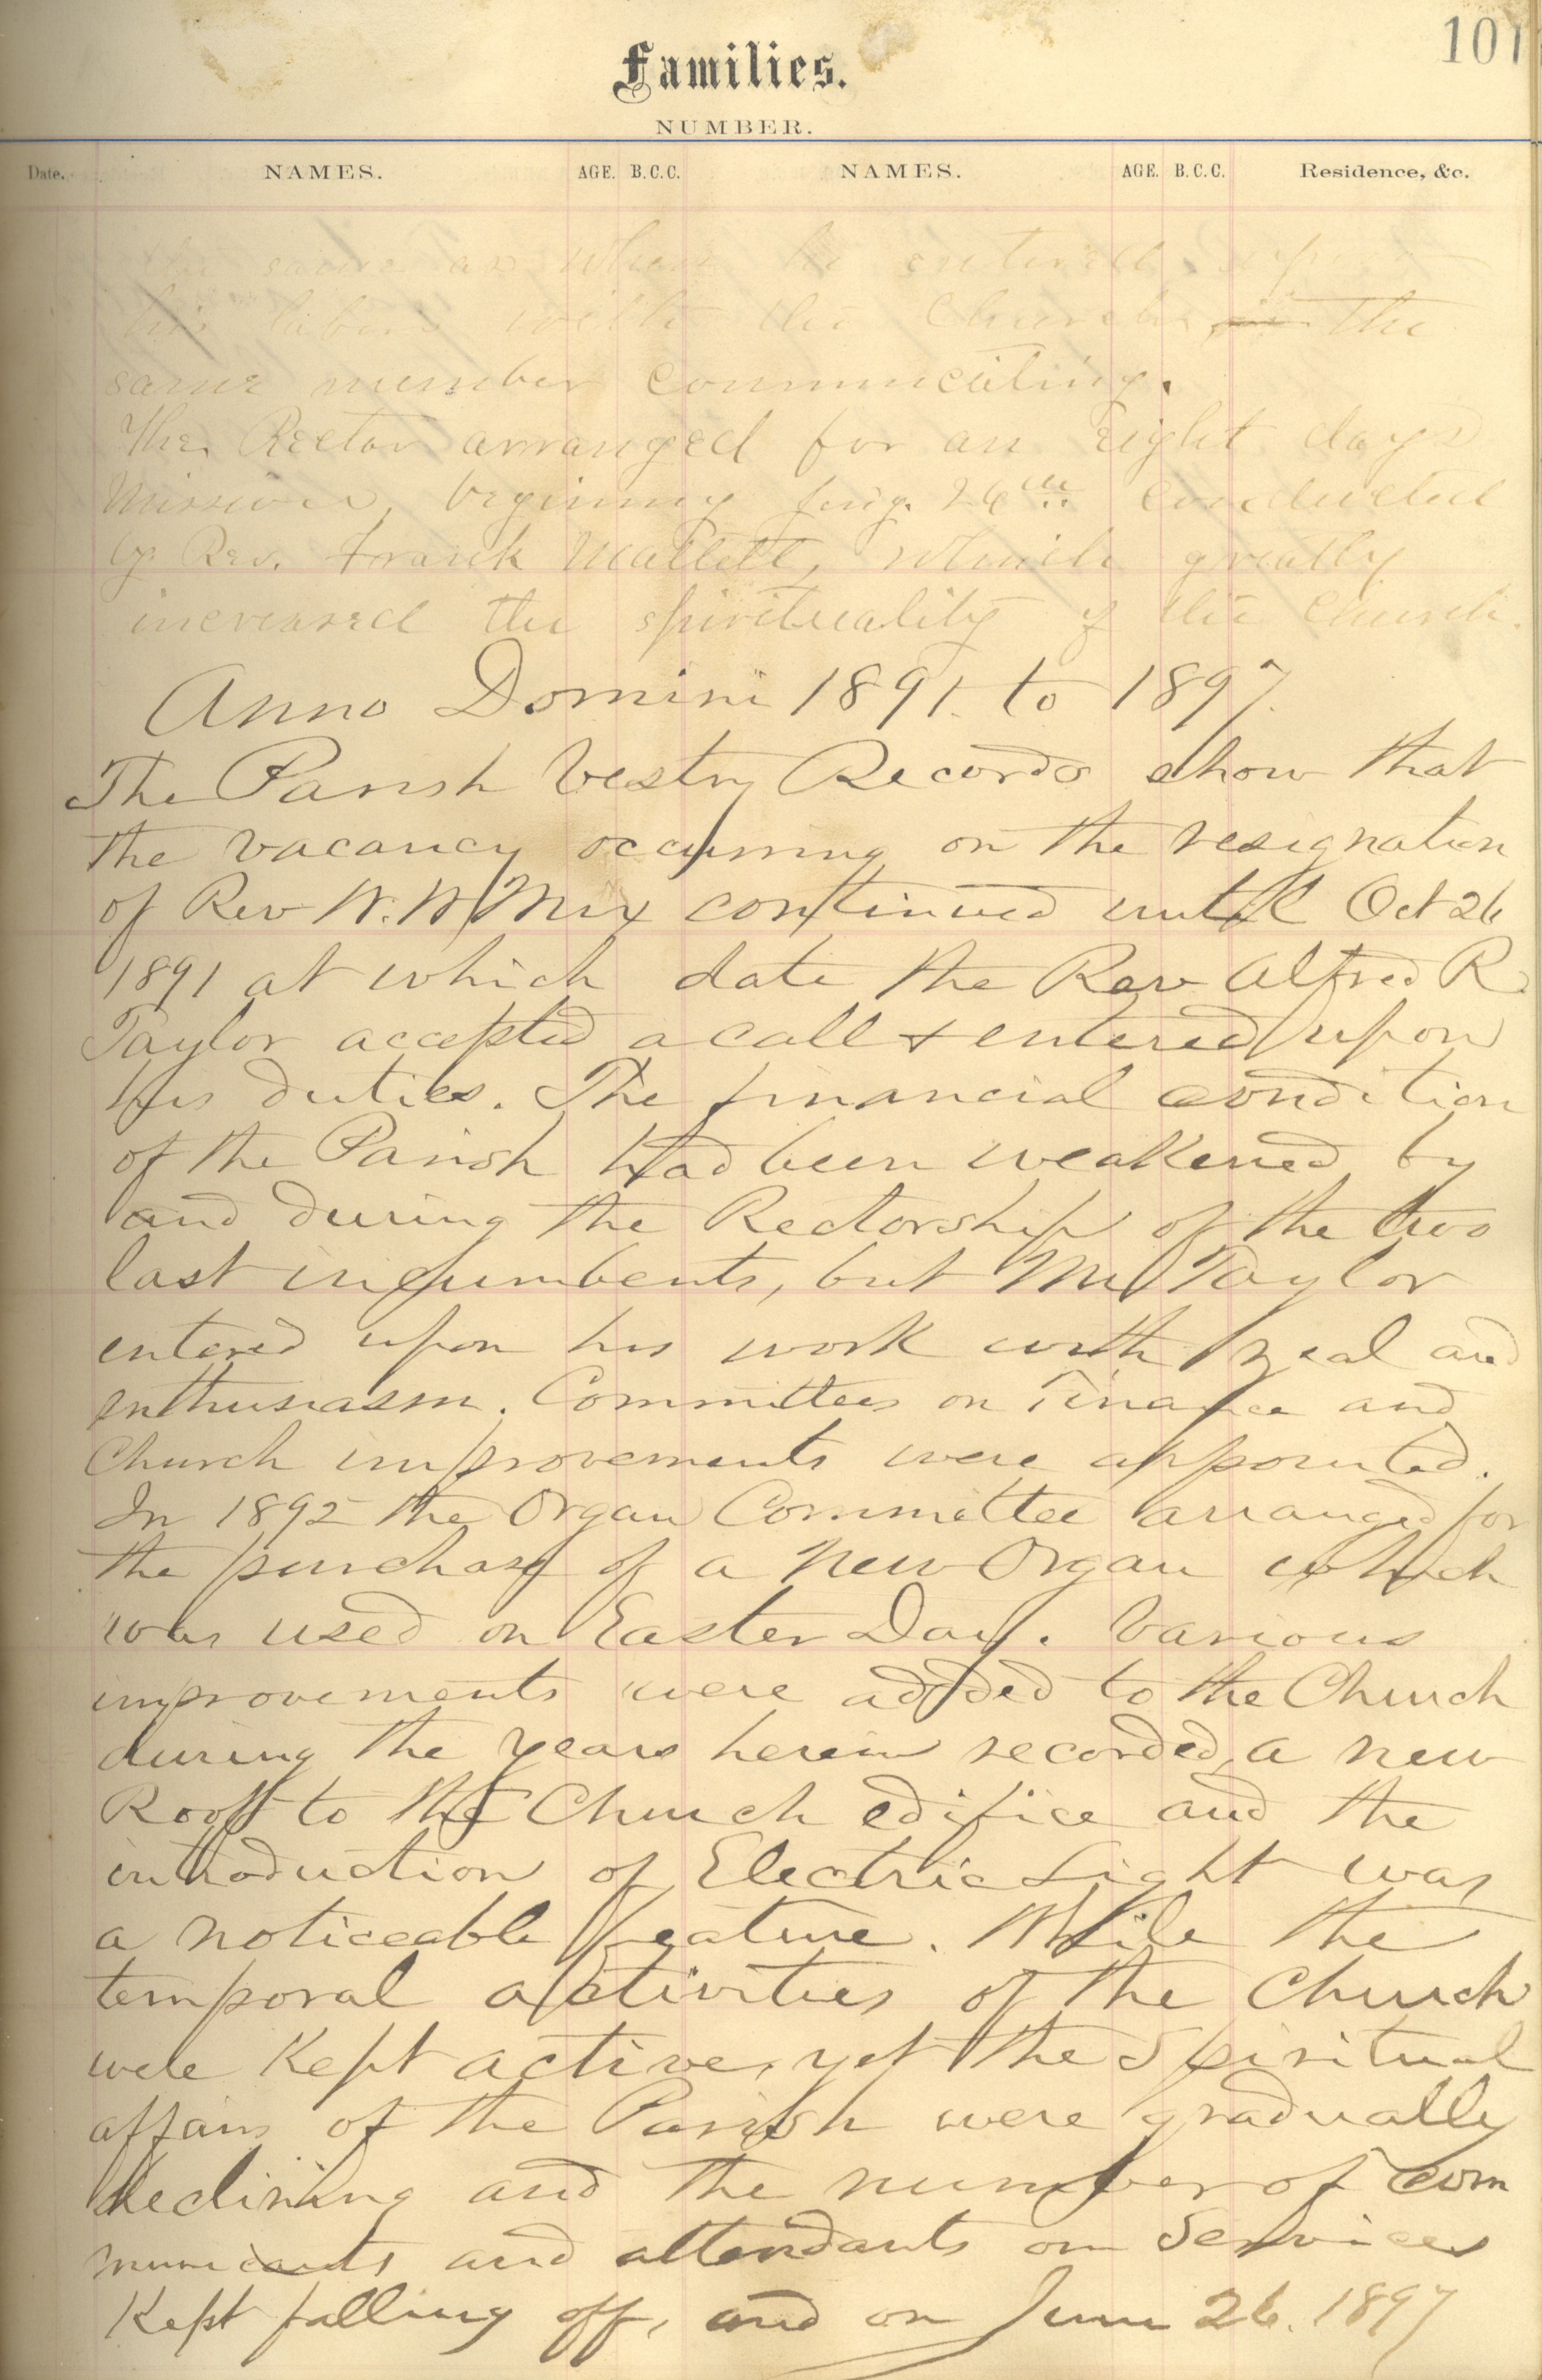 101
Families.
NUMBER.
Date. NAMES. AGE. B.C.C. NAMES. AGE. B.C.C. Residence, &c.
the same as when he entered upon
his labors with the Church, the
same number communicating.
The Rector arranged for an eight days
Mission, beginning 26th conducted
by Rev. Frank Mallett, which greatly
increased the spirituality of the Church.
Anno Domini 1891. to 1897.
The Parish Vestry Records show that
the vacancy occurring on the resignation
of Rev W. W Mix continued until Oct 26
1891 at which date the Rev Alfred R
Taylor accepted a call & entered upon
his duties. The financial condition
of the Parish Had been weakened by
and during the Rectorship of the two
last incumbents, but Mr Taylor
entered upon his work with zeal and
enthusiasm. Committees on Finance and
Church improvements were appointed.
In 1892 the Organ Committee arranged for
the purchase of a New Organ which
was used on Easter Day. Various
improvements were added to the Church
during the years herein recorded, a new
Roof to the Church edifice and the
introduction of Electric Light was
a noticeable feature. While the
temporal activities of the Church
were Kept active, yet the Spiritual
affairs of the Parish were gradually
declining and the number of com
municants and attendants on Services
Kept falling off, and on June 26. 1897